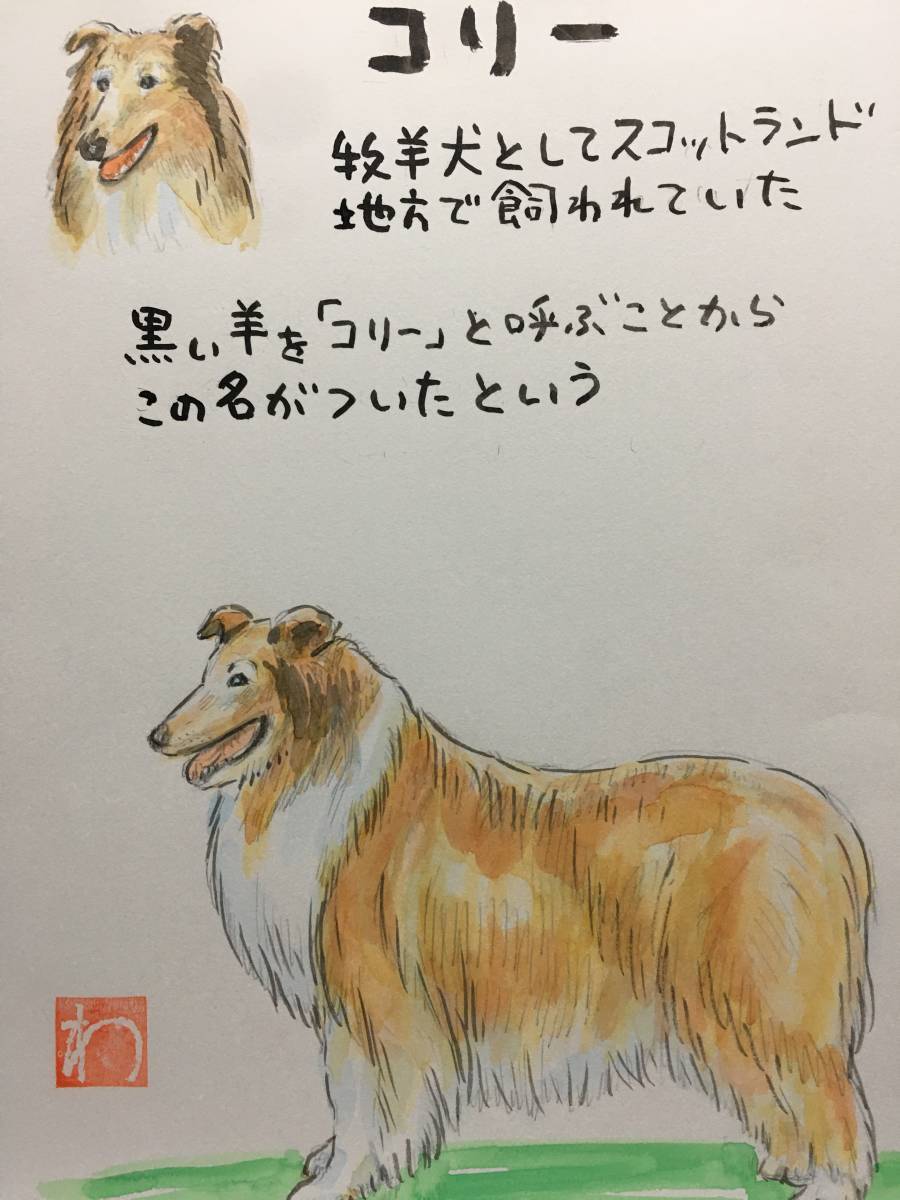 コリー
牧羊犬としてスコットランド
地方で飼われていた
黒い羊を「コリー」と呼ぶことから
この名がついたという
わ